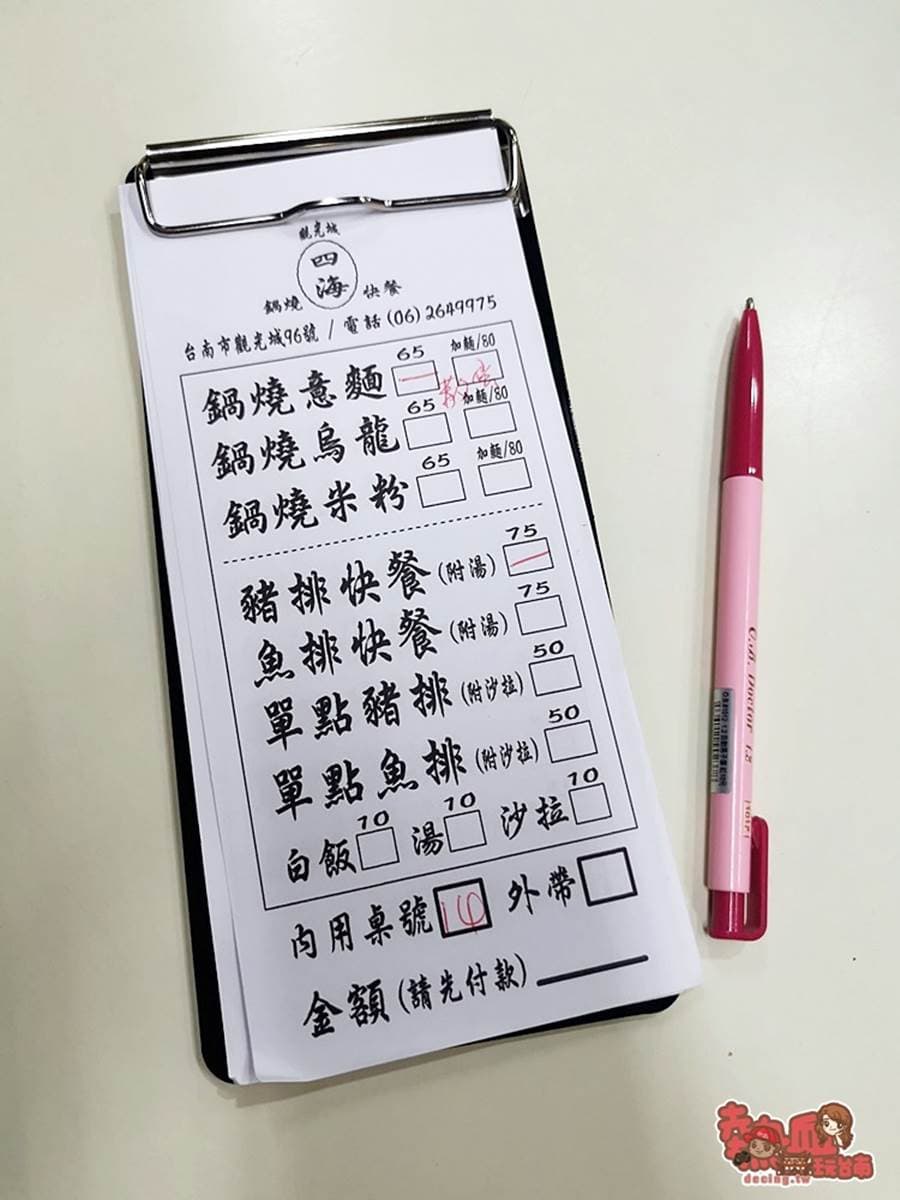 觀光城
四海
鍋燒 快餐
台南市觀光城96號 / 電話(06)2649975
鍋燒意麵 65 一 加麵/80
鍋燒烏龍 65 加麵/80
鍋燒米粉 65 加麵/80
豬排快餐(附湯) 75 一
魚排快餐(附湯) 75
單點豬排(附沙拉) 50
單點魚排(附沙拉) 50
白飯 10 湯 10 沙拉 10
內用桌號 14 外帶
金額(請先付款)
熱血玩台南
decing.tw